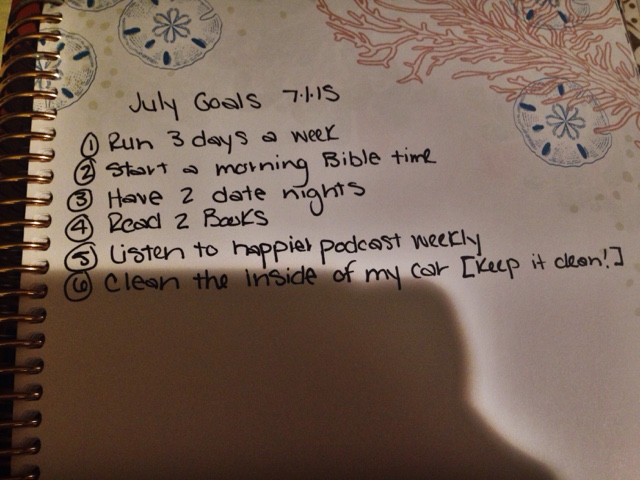 July Goals 7.1.15
① Run 3 days a week
② Start a morning Bible time
③ Have 2 date nights
④ Read 2 Books
⑤ Listen to happier podcast weekly
⑥ Clean the inside of my car [Keep it clean!]